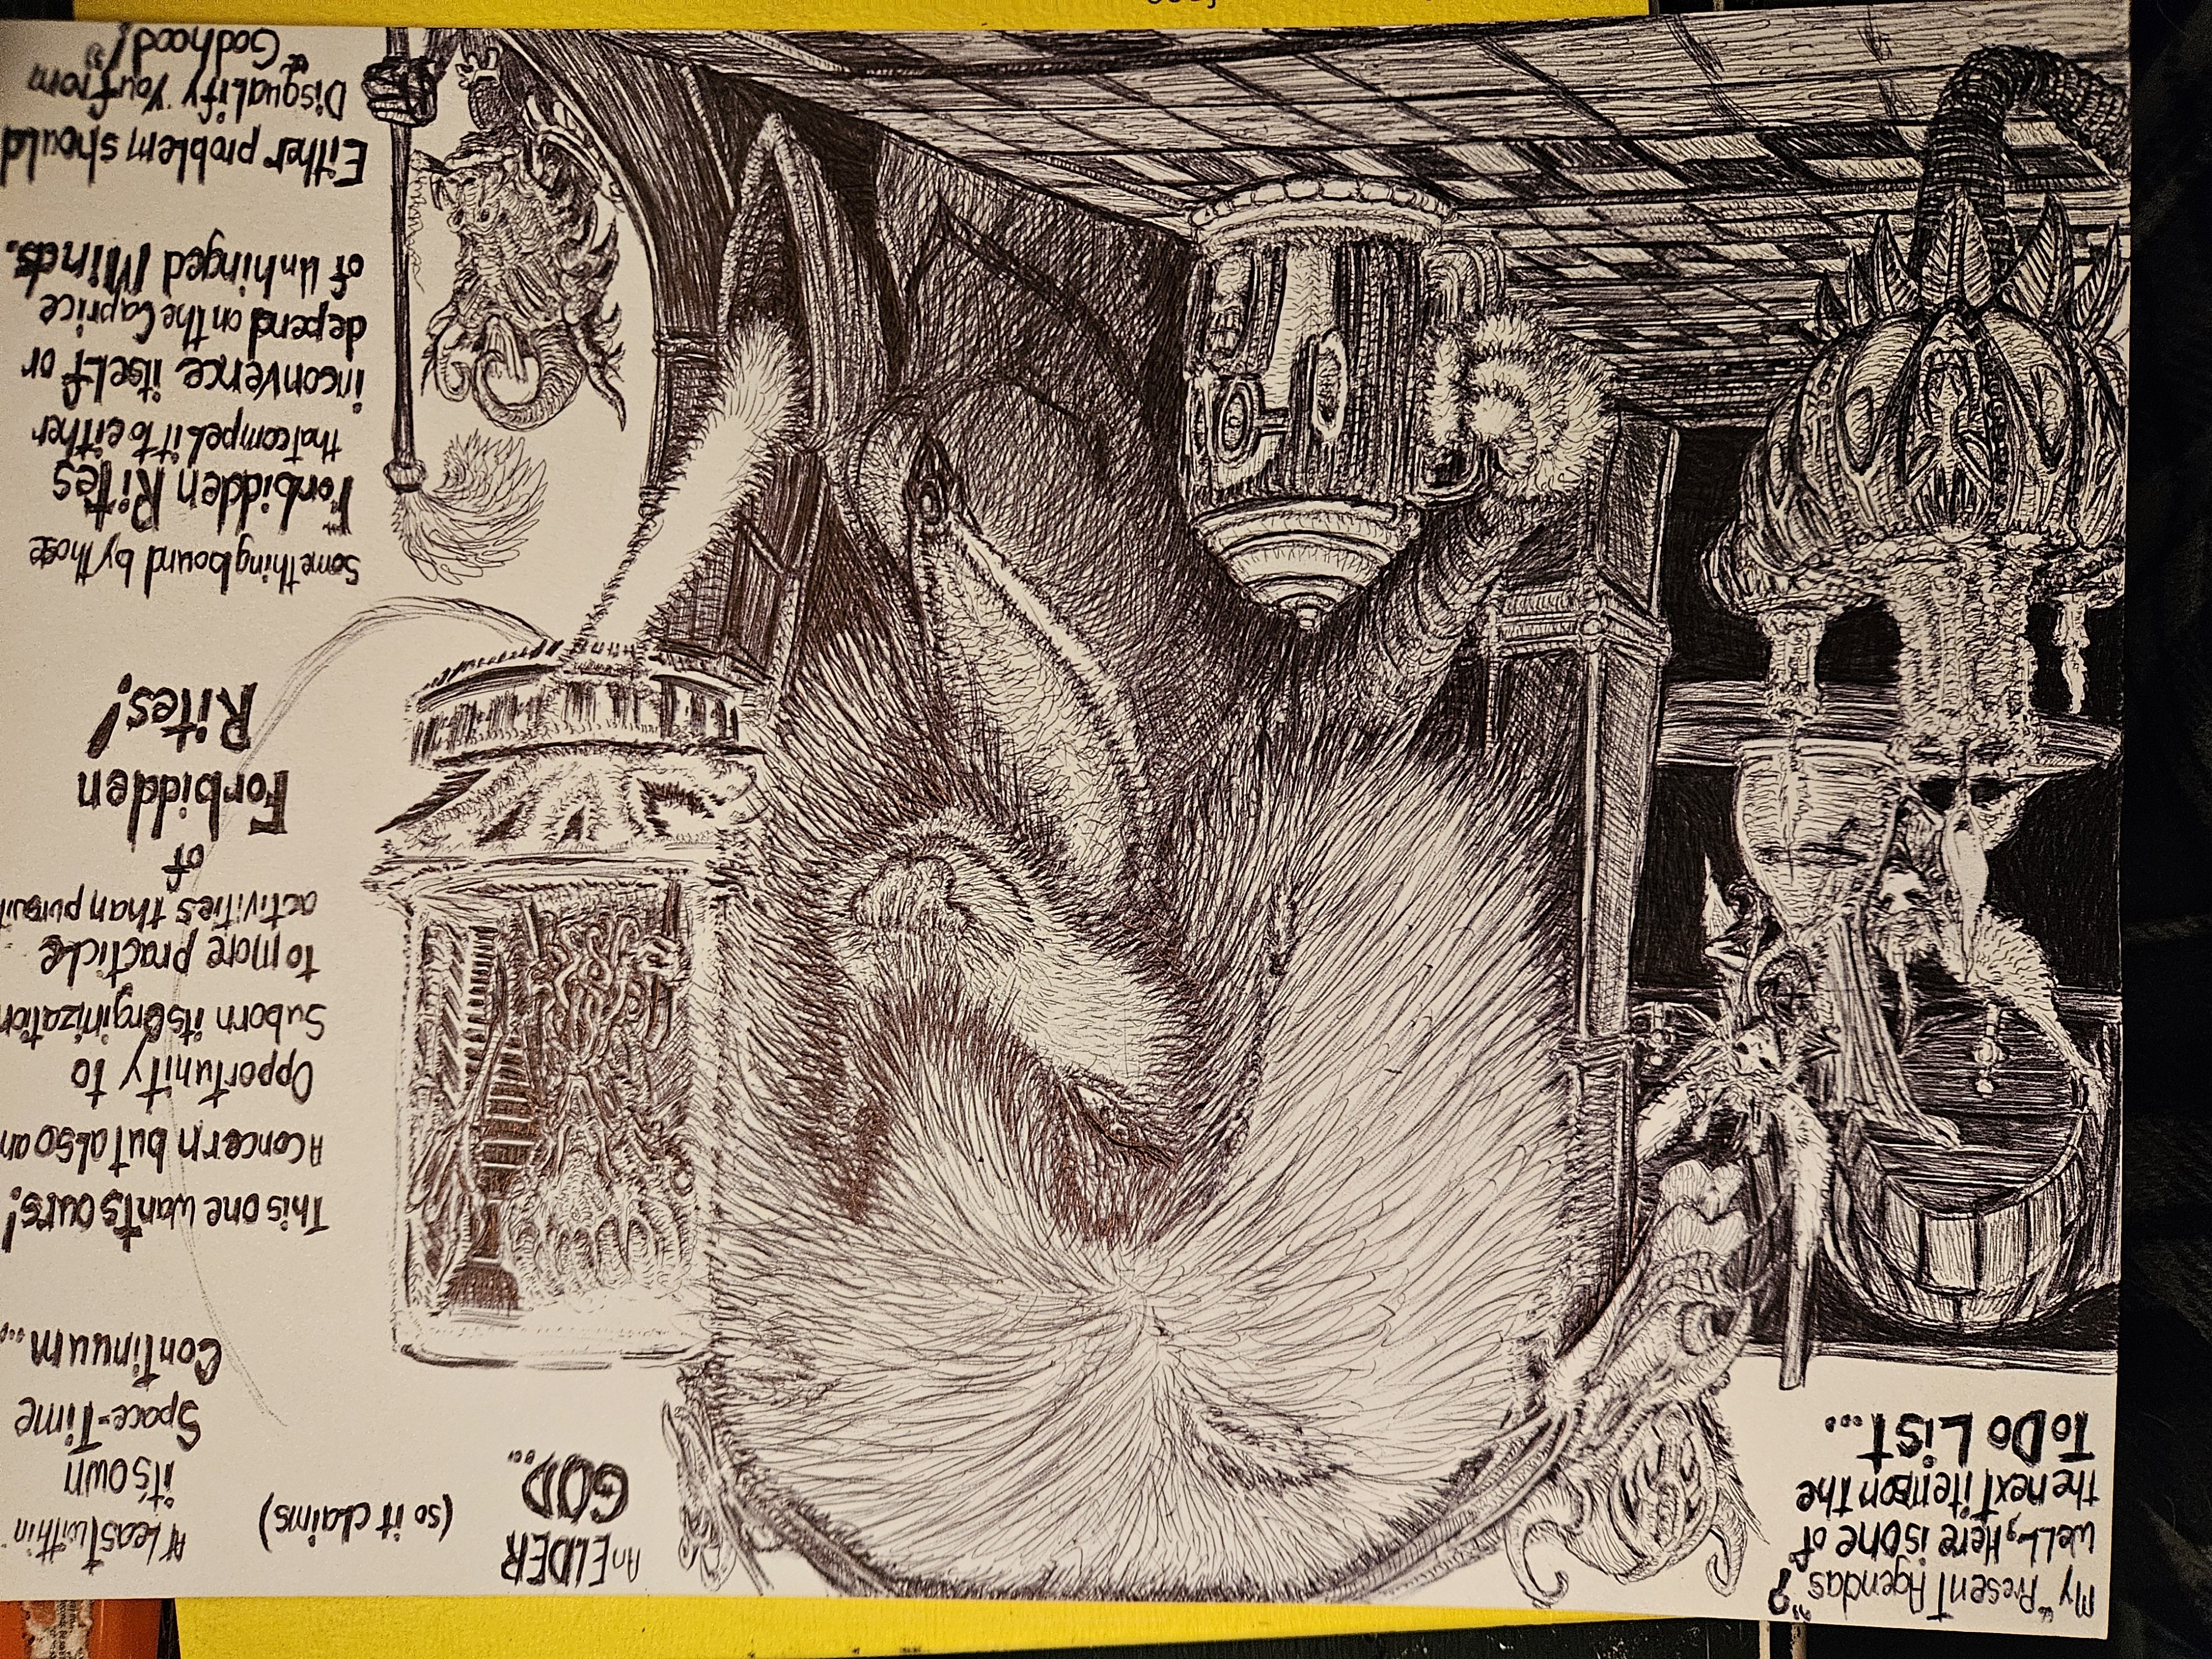 My "Present Agendas"?
Well, Here is one of
the next items on the
To Do List...
An ELDER
GOD...
(so it claims)
At Least within
it's own
Space-Time
Continuum...
This one wants ours!
A Concern but also an
Opportunity to
Suborn its Orginization
to more practicle
activities than pursuit
of
Forbidden
Rites!
Something bound by those
Forbidden Rites
that compel it to either
inconvence itself or
depend on the Caprice
of Unhinged Minds.
Either problem should
Disqualify You from
"Godhood!"